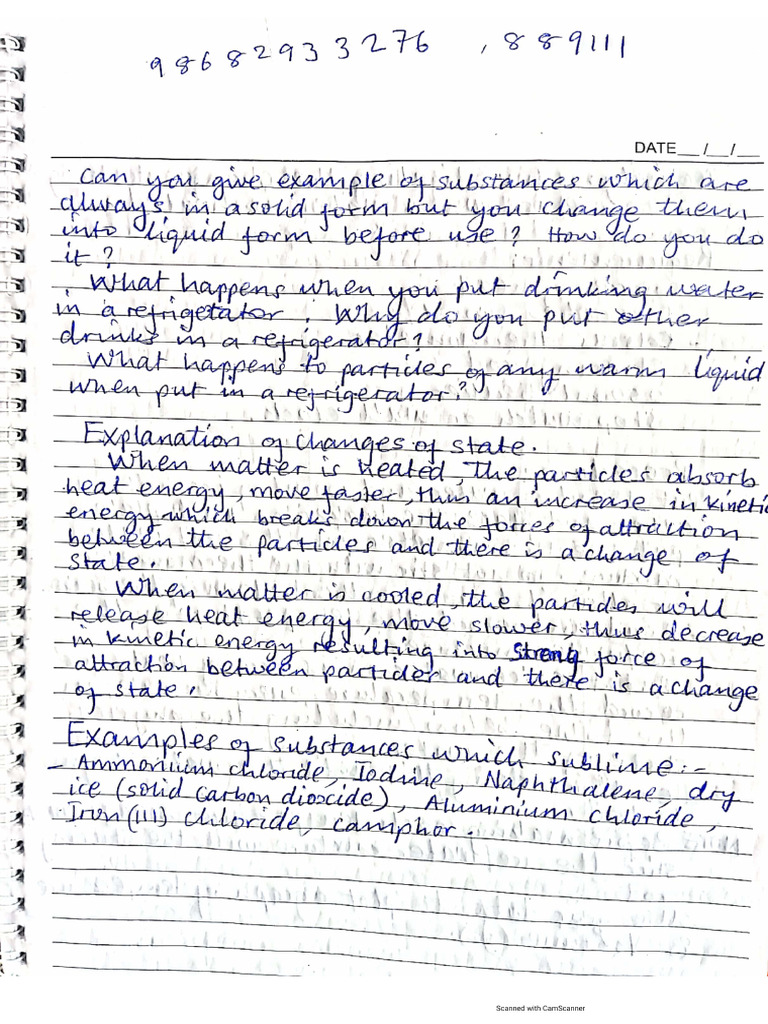 98682933276 , 889111
DATE__/__/__
Can you give example of substances which are
always in a solid form but you change them
into liquid form before use? How do you do
it?
What happens when you put drinking water
in a refrigetator. Why do you put other
drinks in a refrigerator?
What happens to particles of any warm liquid
when put in a refrigerator?
Explanation of changes of state.
When matter is heated, the particles absorb
heat energy, move faster, thus an increase in kinetic
energy which breaks down the forces of attraction
between the particles and there is a change of
state.
When matter is cooled, the particles will
release heat energy, move slower, thus decrease
in kinetic energy resulting into strong force of
attraction between particles and there is a change
of state.
Examples of substances which sublime:-
- Ammonium chloride, Iodine, Naphthalene, dry
ice (solid carbon dioxide), Aluminium chloride,
Iron (III) chloride, camphor.
Scanned with CamScanner